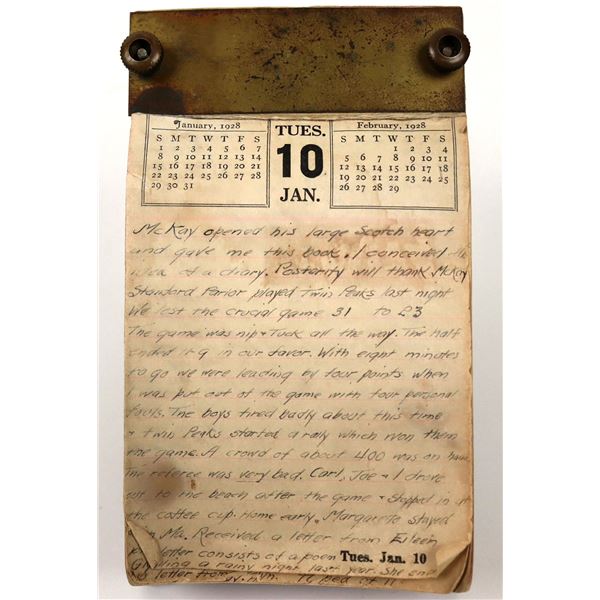 January, 1928
S M T W T F S
1 2 3 4 5 6 7
8 9 10 11 12 13 14
15 16 17 18 19 20 21
22 23 24 25 26 27 28
29 30 31
TUES.
10
JAN.
February, 1928
S M T W T F S
1 2 3 4
5 6 7 8 9 10 11
12 13 14 15 16 17 18
19 20 21 22 23 24 25
26 27 28 29
McKay opened his large Scotch heart
and gave me this book. I conceived the
idea of a diary. Posterity will thank McKay
Standard Parlor played Twin Peaks last night
We lost the crucial game 31 to 23
The game was nip + Tuck all the way. The half
ended 9 in our favor. With eight minutes
to go we were leading by four points when
I was put out of the game with four personal
fouls. The boys tired badly about this time
+ Twin Peaks started a rally which won them
the game. A crowd of about 400 was on
The referee was very bad. Carl, Joe + I drove
out to the beach after the game + stopped in at
the coffee cup. Home early. Marguerite stayed
Ma. Received a letter from Eileen
letter consists of a poem
Tues. Jan. 10
a rainy night last year. She
letter from